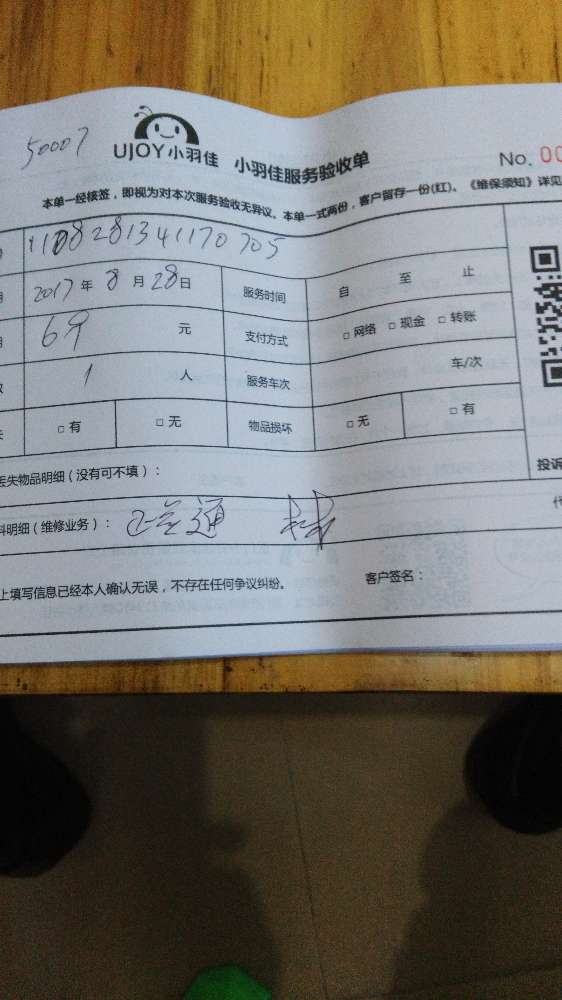 50007
UJOY小羽佳 小羽佳服务验收单
No. 00
本单一经核签，即视为对本次服务验收无异议。本单一式两份，客户留存一份(红)。《维保须知》详见
2017年8月28日 服务时间 自 至 止
69 元 支付方式 □ 网络 □ 现金 □ 转账
1 人 服务车次 车/次
□ 有 □ 无 物品损坏 □ 无 □ 有
丢失物品明细（没有可不填）： 投诉
料明细（维修业务）： 代
上填写信息已经本人确认无误，不存在任何争议纠纷。 客户签名：